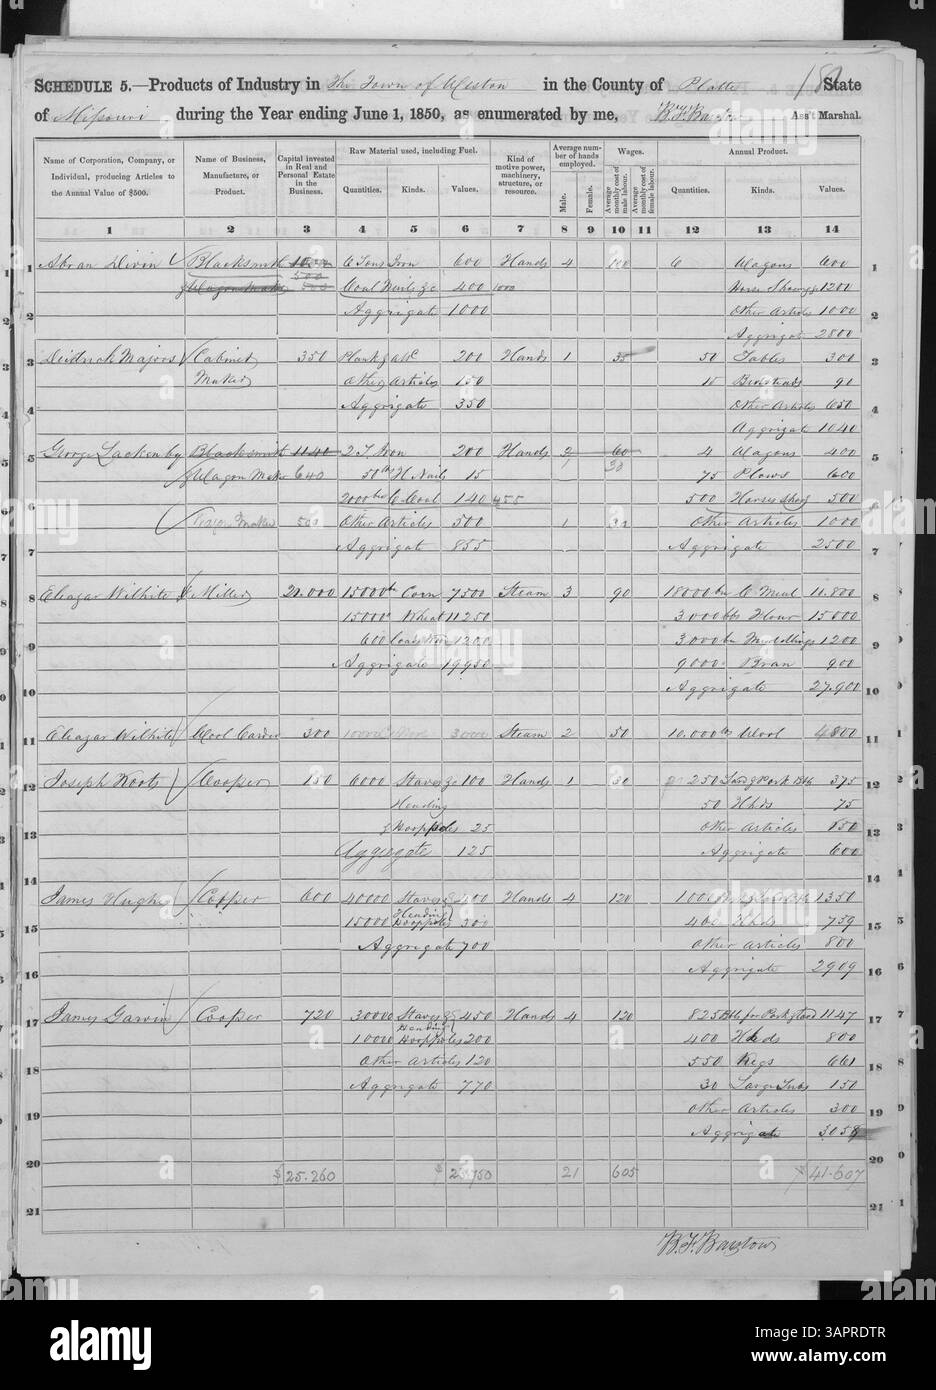 SCHEDULE 5.—Products of Industry in The Town of Weston in the County of Platte State
of Missouri during the Year ending June 1, 1850, as enumerated by me, Ass't Marshal.
Name of Corporation, Company, or Individual, producing Articles to the Annual Value of $500.
Name of Business, Manufacture, or Product.
Capital invested in Real and Personal Estate in the Business.
Raw Material used, including Fuel.
Quantities. Kinds. Values.
Kind of motive power, machinery, structure, or resource.
Average number of hands employed.
Male. Female.
Wages.
Average monthly cost of male labour.
Average monthly cost of female labour.
Annual Product.
Quantities. Kinds. Values.
1 2 3 4 5 6 7 8 9 10 11 12 13 14
1 Blacksmith 6 Tons Iron 600 Hands 4 6 Wagons 600 1
& Wagon Maker 500 Coal Nails &c 400 1000 1200
2 Aggregate 1000 Other Articles 1000 2
Aggregate 2800
3 Cabinet 350 200 Hands 1 35 50 Tables 300 3
Maker Other Articles 150 15 Bedsteads 90
4 Aggregate 350 Other Articles 650 4
Aggregat 1040
5 George Lackenby Blacksmith 1140 2 T. Iron 200 Hands 2 60 4 Wagons 400 5
& Wagon Maker 640 50 lb H Nails 15 30 75 Plows 600
6 2000 bu C Coal 140 455 500 Horses Shod 500 6
Maker 500 Other Articles 500 1 30 Other Articles 1000
7 Aggregate 855 Aggregate 2500 7
8 Eleazar Wilhite Miller 21.000 15000 bu Corn 7500 Steam 3 90 18000 bu C Meal 11.800 8
15000 Wheat 11250 3000 bbs Flour 15000
9 600 1200 3000 bu Middlings 1200 9
Aggregate 19950 9000 Bran 900
10 Aggregate 27.900 10
11 Eleazar Wilhite Wool Carder 300 3000 Steam 2 50 10.000 lbs Wool 4800 11
12 Joseph Koots Cooper 150 6000 Staves &c 100 Hands 1 30 250 375 12
Heading 50 Hhds 75
13 & Hooppoles 25 Other Articles 150 13
Aggregate 125 Aggregate 600
14 James Hughes Cooper 600 40000 Staves & 400 Hands 4 120 1350 14
15 15000 Heading Hooppoles 300 Hhds 739 15
Aggregate 700 Other Articles 800
16 Aggregate 2909 16
17 James Garvin Cooper 720 30000 Staves & 450 Hands 4 120 825 Bbls for Pork & Lard 1147 17
Heading
10000 Hooppoles 200 400 800
18 Other Articles 120 550 Kegs 661 18
Aggregate 770 30 Large Tubs 150
19 Other Articles 300 19
Aggregate 3058
20 $25.260 21 605 41.607 20
21 21
B.F. Barstow
alamy
Image ID: 3APRDTR
www.alamy.com